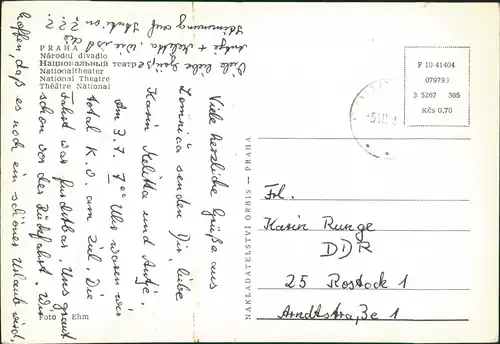 PRAHA
Národní divadlo
Национальный театр
Nationaltheater
National Theatre
Théâtre National
Foto Ehm
NAKLADATELSTVÍ ORBIS — PRAHA
P 10-41404
079793
3 5267 365
Kčs 0,70
Viele herzliche Grüße aus
Lomnica senden Dir, liebe
Karin, Melitta und Antje.
Am 3.7. 7⁰⁰ Uhr waren wir
total K.O. am Ziel. Die
Fahrt war furchtbar. Uns graut
schon vor der Rückfahrt. Wir
hoffen, daß es noch ein schöner Urlaub wird.
Viele liebe Grüße
Antje + Melitta. Wie ist die
Stimmung auf Station ???
Frl.
Karin Runge
DDR
25 Rostock 1
Arndtstraße 1